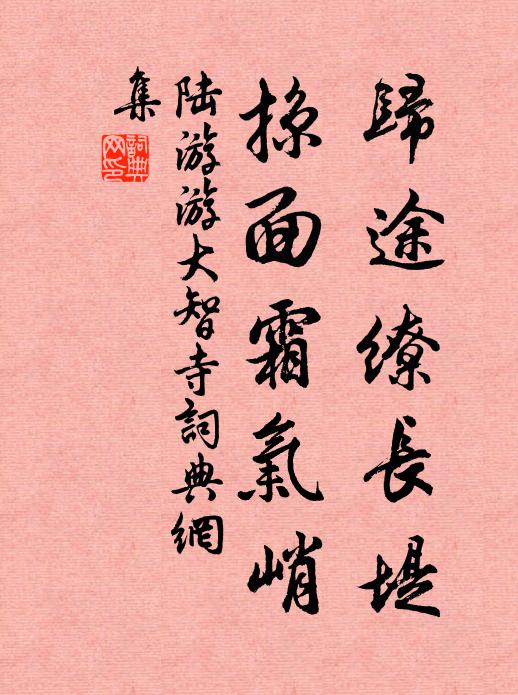 歸途繚長堤
掠面霜氣峭
陸游游大智寺詞典網
集
詞典網印